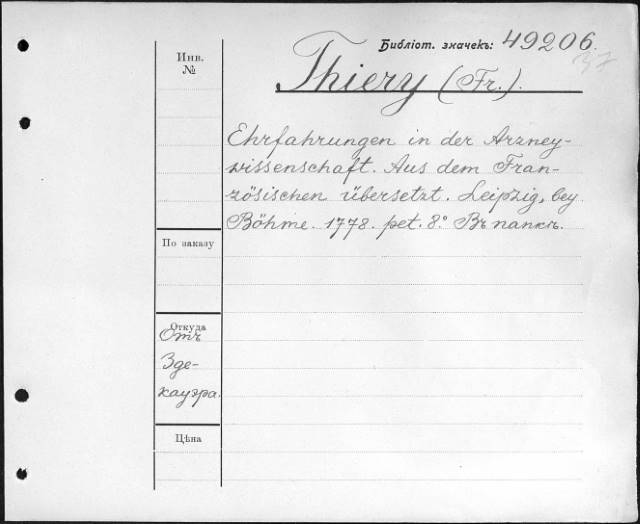 Библіот. значекъ: 49206.
37
Инв.
№
Thiery (Fr.).
Ehrfahrungen in der Arzney-
wissenschaft. Aus dem Fran-
zösischen übersetzt. Leipzig, bey
Böhme. 1778. pet. 8.° Въ папкѣ.
По заказу
Откуда
Отъ
Зде-
кауэра.
Цѣна